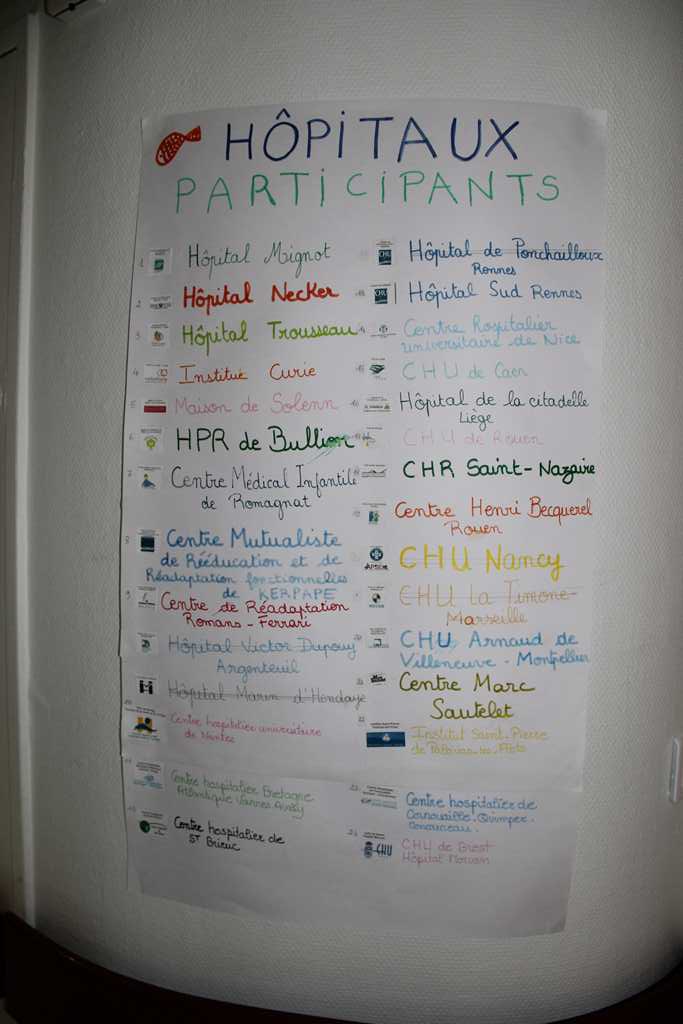 HÔPITAUX
PARTICIPANTS
1 Hôpital Mignot
2 Hôpital Necker
3 Hôpital Trousseau
4 Institut Curie
5 Maison de Solenn
6 HPR de Bullion
7 Centre Médical Infantile
de Romagnat
8 Centre Mutualiste
de Rééducation et de
Réadaptation fonctionnelles
de KERPAPE
9 Centre de Réadaptation
Romans - Ferrari
Hôpital Victor Dupouy
Argenteuil
Hôpital Marin d'Hendaye
Centre hospitalier universitaire
de Nantes
Centre hospitalier Bretagne
Atlantique Vannes Auray
Centre hospitalier de
ST Brieuc
CHU Hôpital de Ponchailloux
Rennes
CHU Hôpital Sud Rennes
Centre Hospitalier
universitaire de Nice
CHU de Caen
Hôpital de la citadelle
Liège
CHU de Rouen
CHR Saint-Nazaire
Centre Henri Becquerel
Rouen
CHU Nancy
CHU la Timone-
Marseille
CHU Arnaud de
Villeneuve - Montpellier
Centre Marc
Sautelet
Institut Saint-Pierre
de Palavas-les-Flots
Centre hospitalier de
Cornouaille. Quimper.
Concarneau.
CHU CHU de Brest
Hôpital Morvan